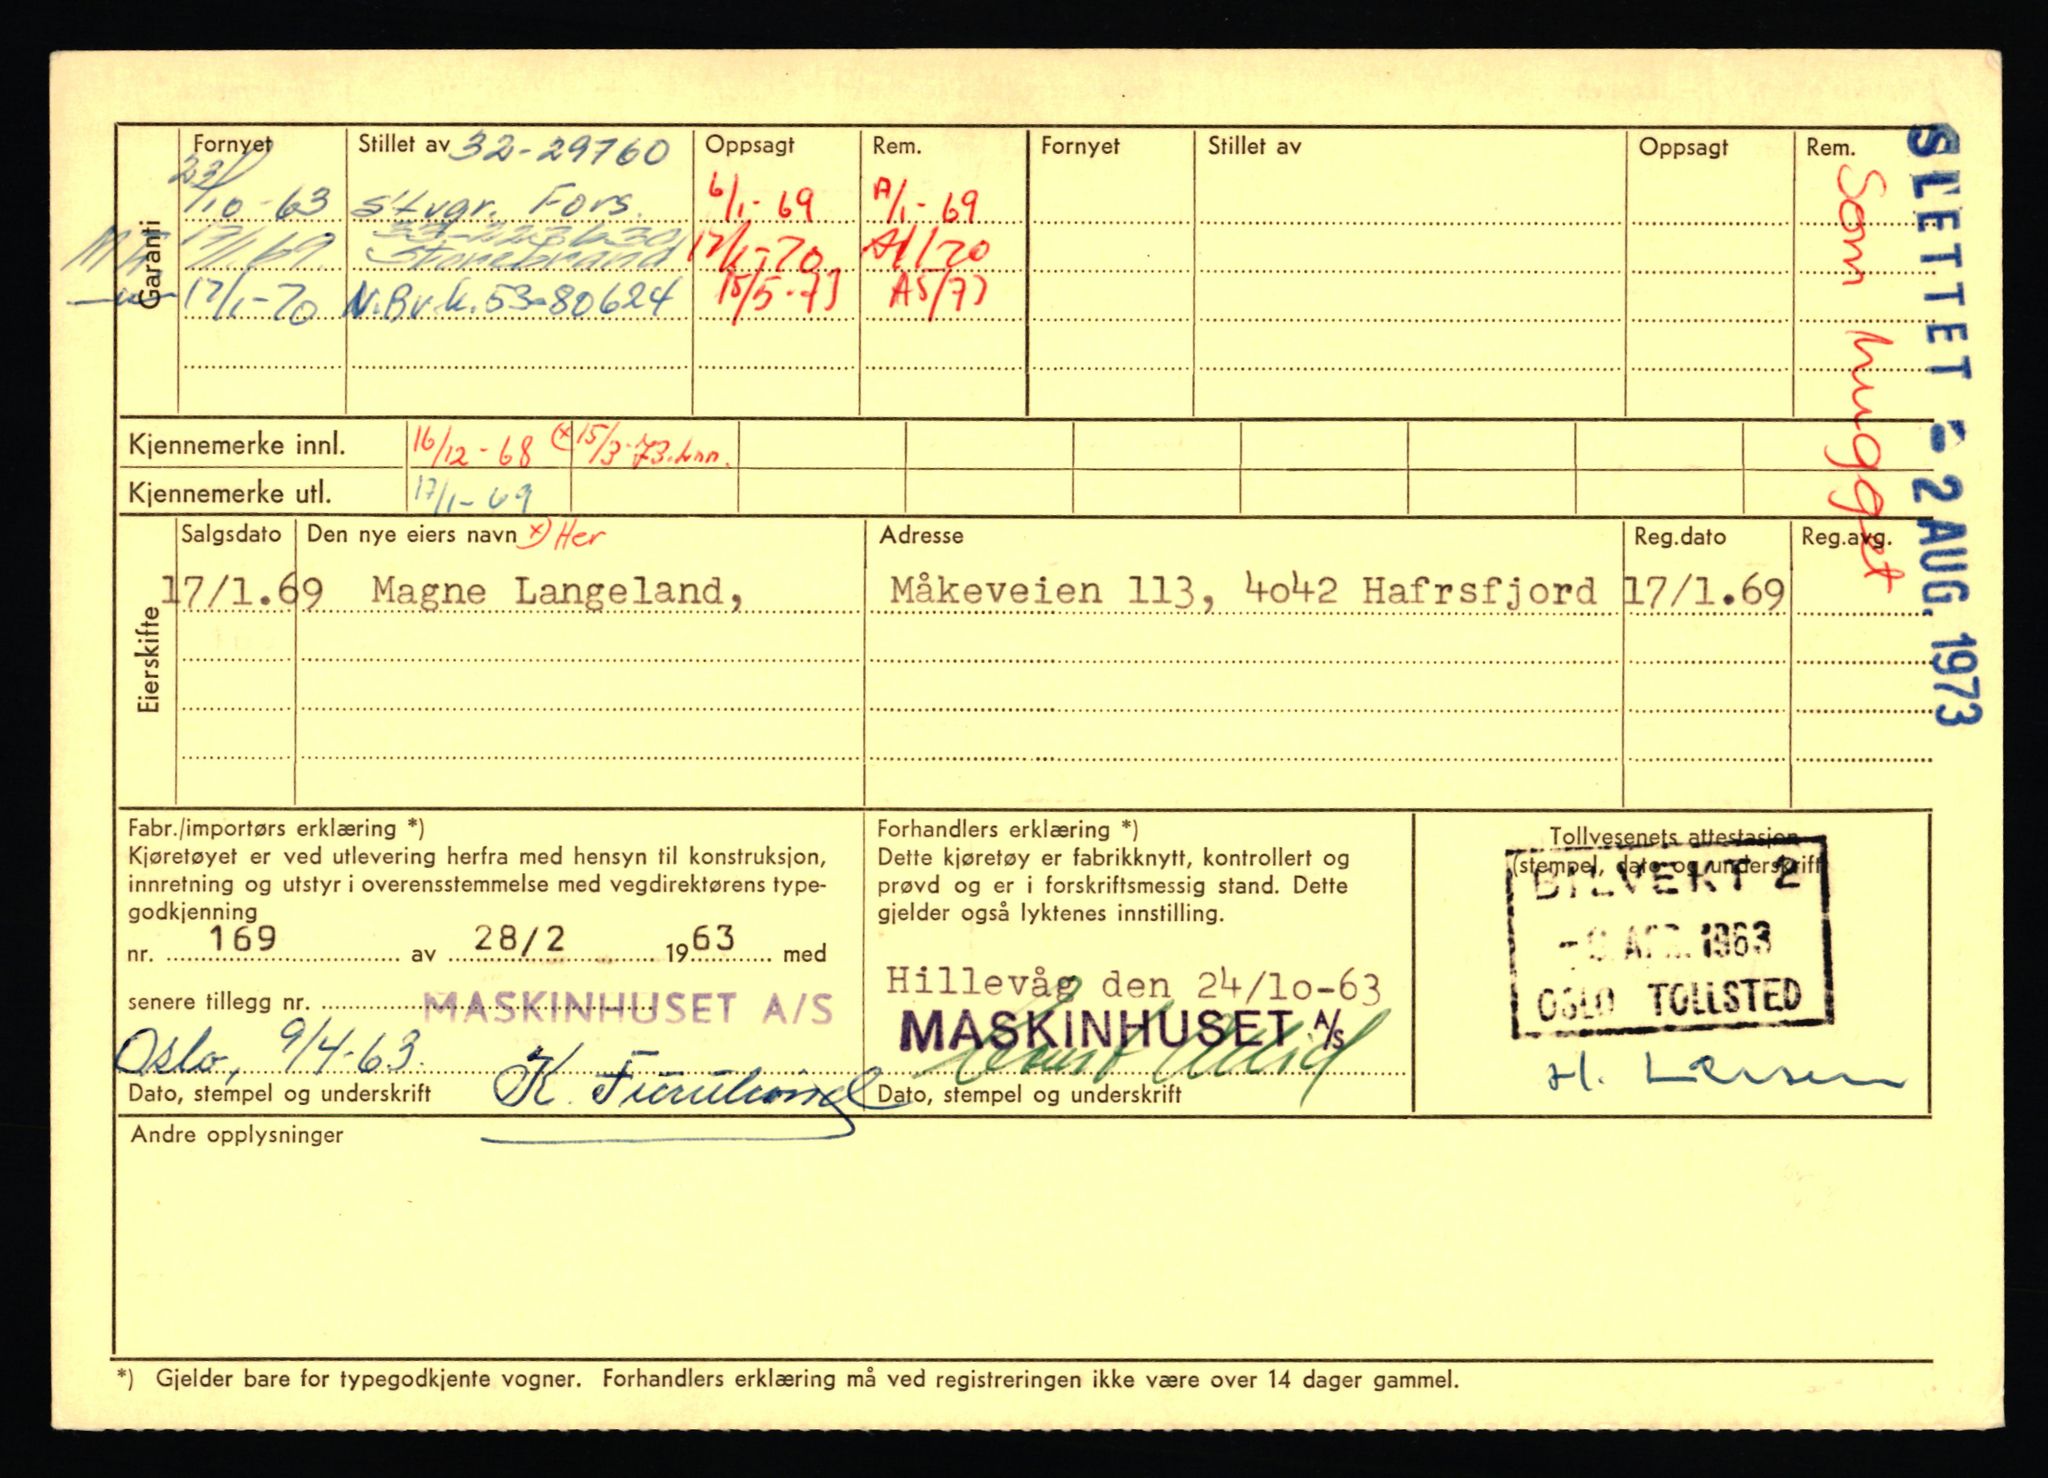 Garanti
Fornyet Stillet av 32-29760 Oppsagt Rem. Fornyet Stillet av Oppsagt Rem.
23/10-63 Stvgr. Fors. 6/1-69 A/1-69
17/1.69. Storebrand 17/1-70 A1/70
17/1-70 N.Br.k. 53-80624 15/5-73 A5/73
Som hugget
SLETTET - 2 AUG. 1973
Kjennemerke innl. 16/12-68 (x 15/3-73.
Kjennemerke utl. 17/1-69
Eierskifte
Salgsdato Den nye eiers navn x) Her Adresse Reg.dato Reg.avg.
17/1.69 Magne Langeland, Måkeveien 113, 4o42 Hafrsfjord 17/1.69
Fabr./importørs erklæring *)
Kjøretøyet er ved utlevering herfra med hensyn til konstruksjon,
innretning og utstyr i overensstemmelse med vegdirektørens type-
godkjenning
nr. 169 av 28/2 1963 med
senere tillegg nr. MASKINHUSET A/S
Oslo, 9/4-63.
Dato, stempel og underskrift
Forhandlers erklæring *)
Dette kjøretøy er fabrikknytt, kontrollert og
prøvd og er i forskriftsmessig stand. Dette
gjelder også lyktenes innstilling.
Hillevåg den 24/1o-63
MASKINHUSET A/S
Dato, stempel og underskrift
Tollvesenets attestasjon
(stempel, dato og underskrift)
BILVEKT 2
APR. 1963
OSLO TOLLSTED
H. Larsen
Andre opplysninger
*) Gjelder bare for typegodkjente vogner. Forhandlers erklæring må ved registreringen ikke være over 14 dager gammel.